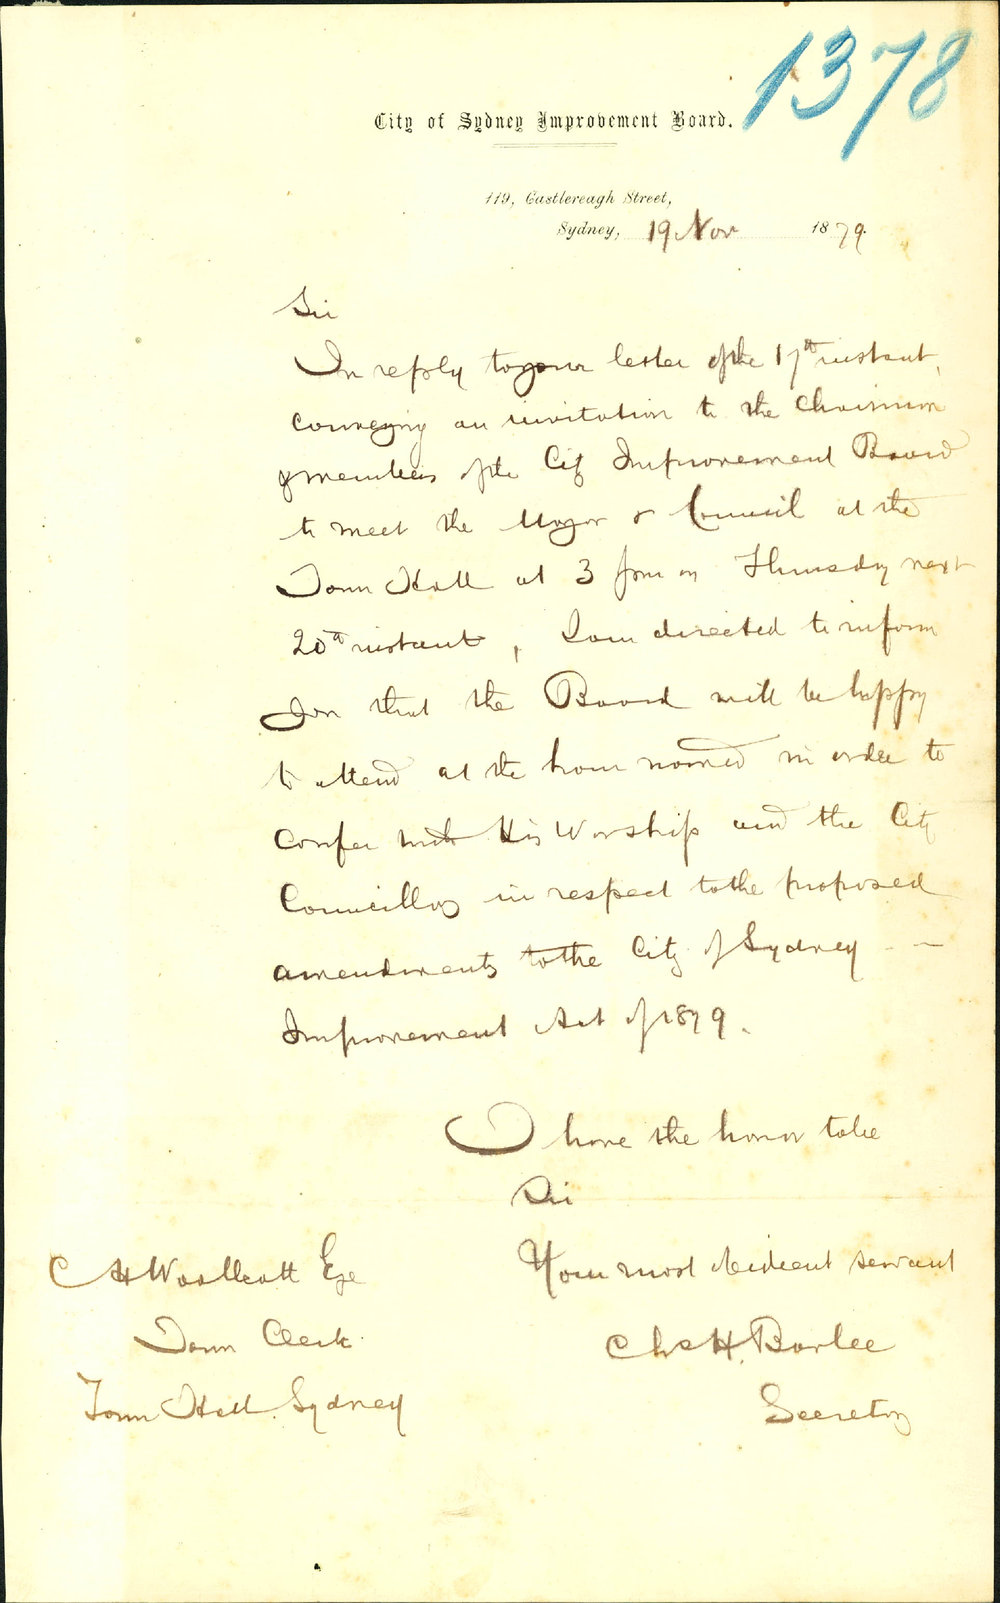 1378
City of Sydney Improvement Board.
119, Castlereagh Street,
Sydney, 19 Nov 1879.
Sir
In reply to your letter of the 17th instant,
conveying an invitation to the Chairman
& members of the City Improvement Board
to meet the Mayor & Council at the
Town Hall at 3 pm on Thursday next
20th instant, I am directed to inform
you that the Board will be happy
to attend at the hour named in order to
confer with His Worship and the City
Councillors in respect to the proposed
amendments to the City of Sydney -- 
Improvement Act of 1879.
I have the honor to be
Sir
Your most obedient servant
Chs H. Barlee
Secretary
C H Woolcott Esqe
Town Clerk
Town Hall. Sydney